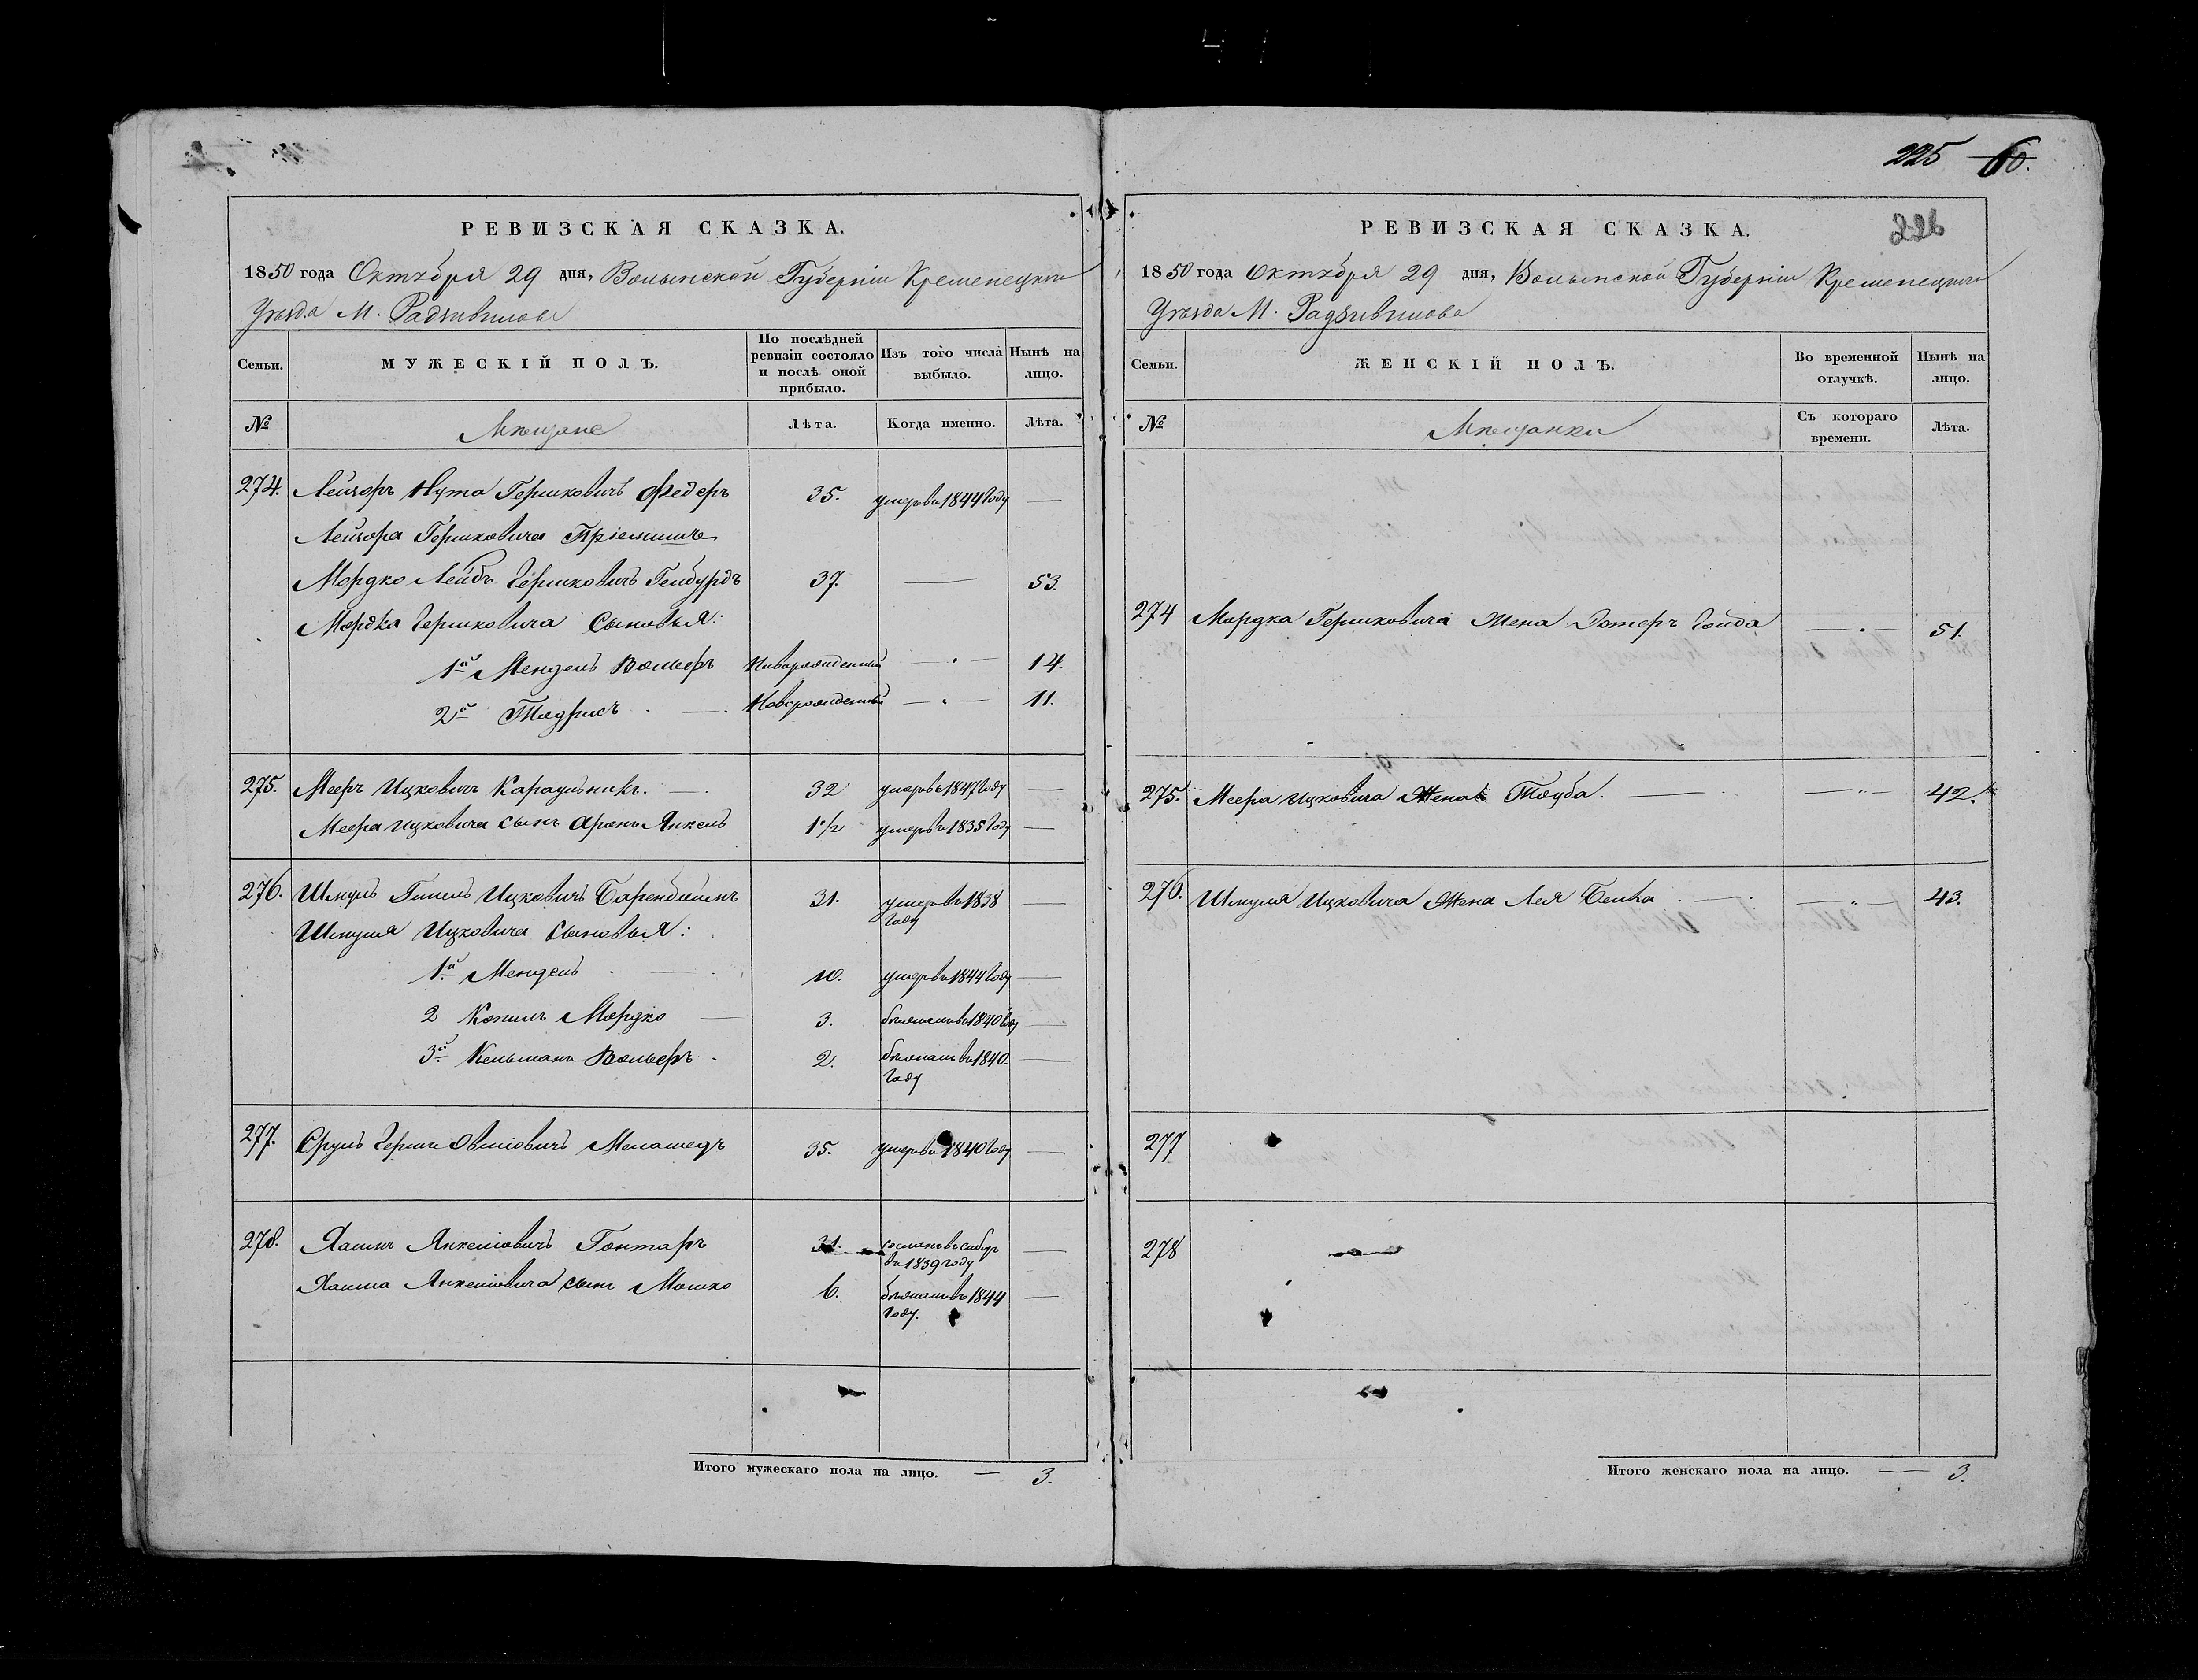 225 60.
226
РЕВИЗСКАЯ СКАЗКА.
1850 года Октября 29 дня, Волынской Губерніи Кременецкаго
Уѣзда М. Радзивилова
Семьи.
МУЖЕСКІЙ ПОЛЪ.
По послѣдней ревизіи состояло и послѣ оной прибыло.
Изъ того числа выбыло.
Нынѣ на лицо.
№
Мѣщане
Лѣта.
Когда именно.
Лѣта.
274. Лейзоръ Нута Гершковичъ Федеръ 35. умеръ въ 1844 году —
Лейзора Гершковича Пріемишъ
Мордко Лейбъ Гершковичъ 37. — 53.
Мордка Гершковича Сыновья:
1й Мендель Вольфъ Новорожденный — 14.
2й Тодрисъ Новорожденный — 11.
275. Мееръ Ицковичъ Караульникъ. 32 умеръ въ 1847 году —
Меера Ицковича сынъ Аронъ Янкель 1 1/2 умеръ въ 1835 году —
276. Шмуль Ицковичъ 31. умеръ въ 1838 году —
Шмуля Ицковича Сыновья:
1.й Мендель 10. умеръ въ 1844 году —
2 Копель Мордко — 3. бѣжалъ въ 1840 году —
3й Кельманъ Вольфъ 2. бѣжалъ въ 1840. году —
277. Сруль Гершъ Овшіовичъ Меламедъ 35. умеръ въ 1840 году —
278. Хаимъ Янкеліовичъ Гонтаръ 31. сосланъ въ сибирь въ 1839 году —
Хаима Янкеліовича сынъ Мошко 6. бѣжалъ въ 1844 году. —
Итого мужескаго пола на лицо. — 3.
РЕВИЗСКАЯ СКАЗКА.
1850 года Октября 29 дня, Волынской Губерніи Кременецкаго
Уѣзда М. Радзивилова
Семьи.
ЖЕНСКІЙ ПОЛЪ.
Во временной отлучкѣ.
Нынѣ на лицо.
№
Мѣщанки
Съ котораго времени.
Лѣта.
274 Мордка Гершковича Жена Эстеръ — 51.
275. Меера Ицковича Жена Тауба. — 42.
276. Шмуля Ицковича Жена Лея Бейла — 43.
277
278
Итого женскаго пола на лицо. — 3.